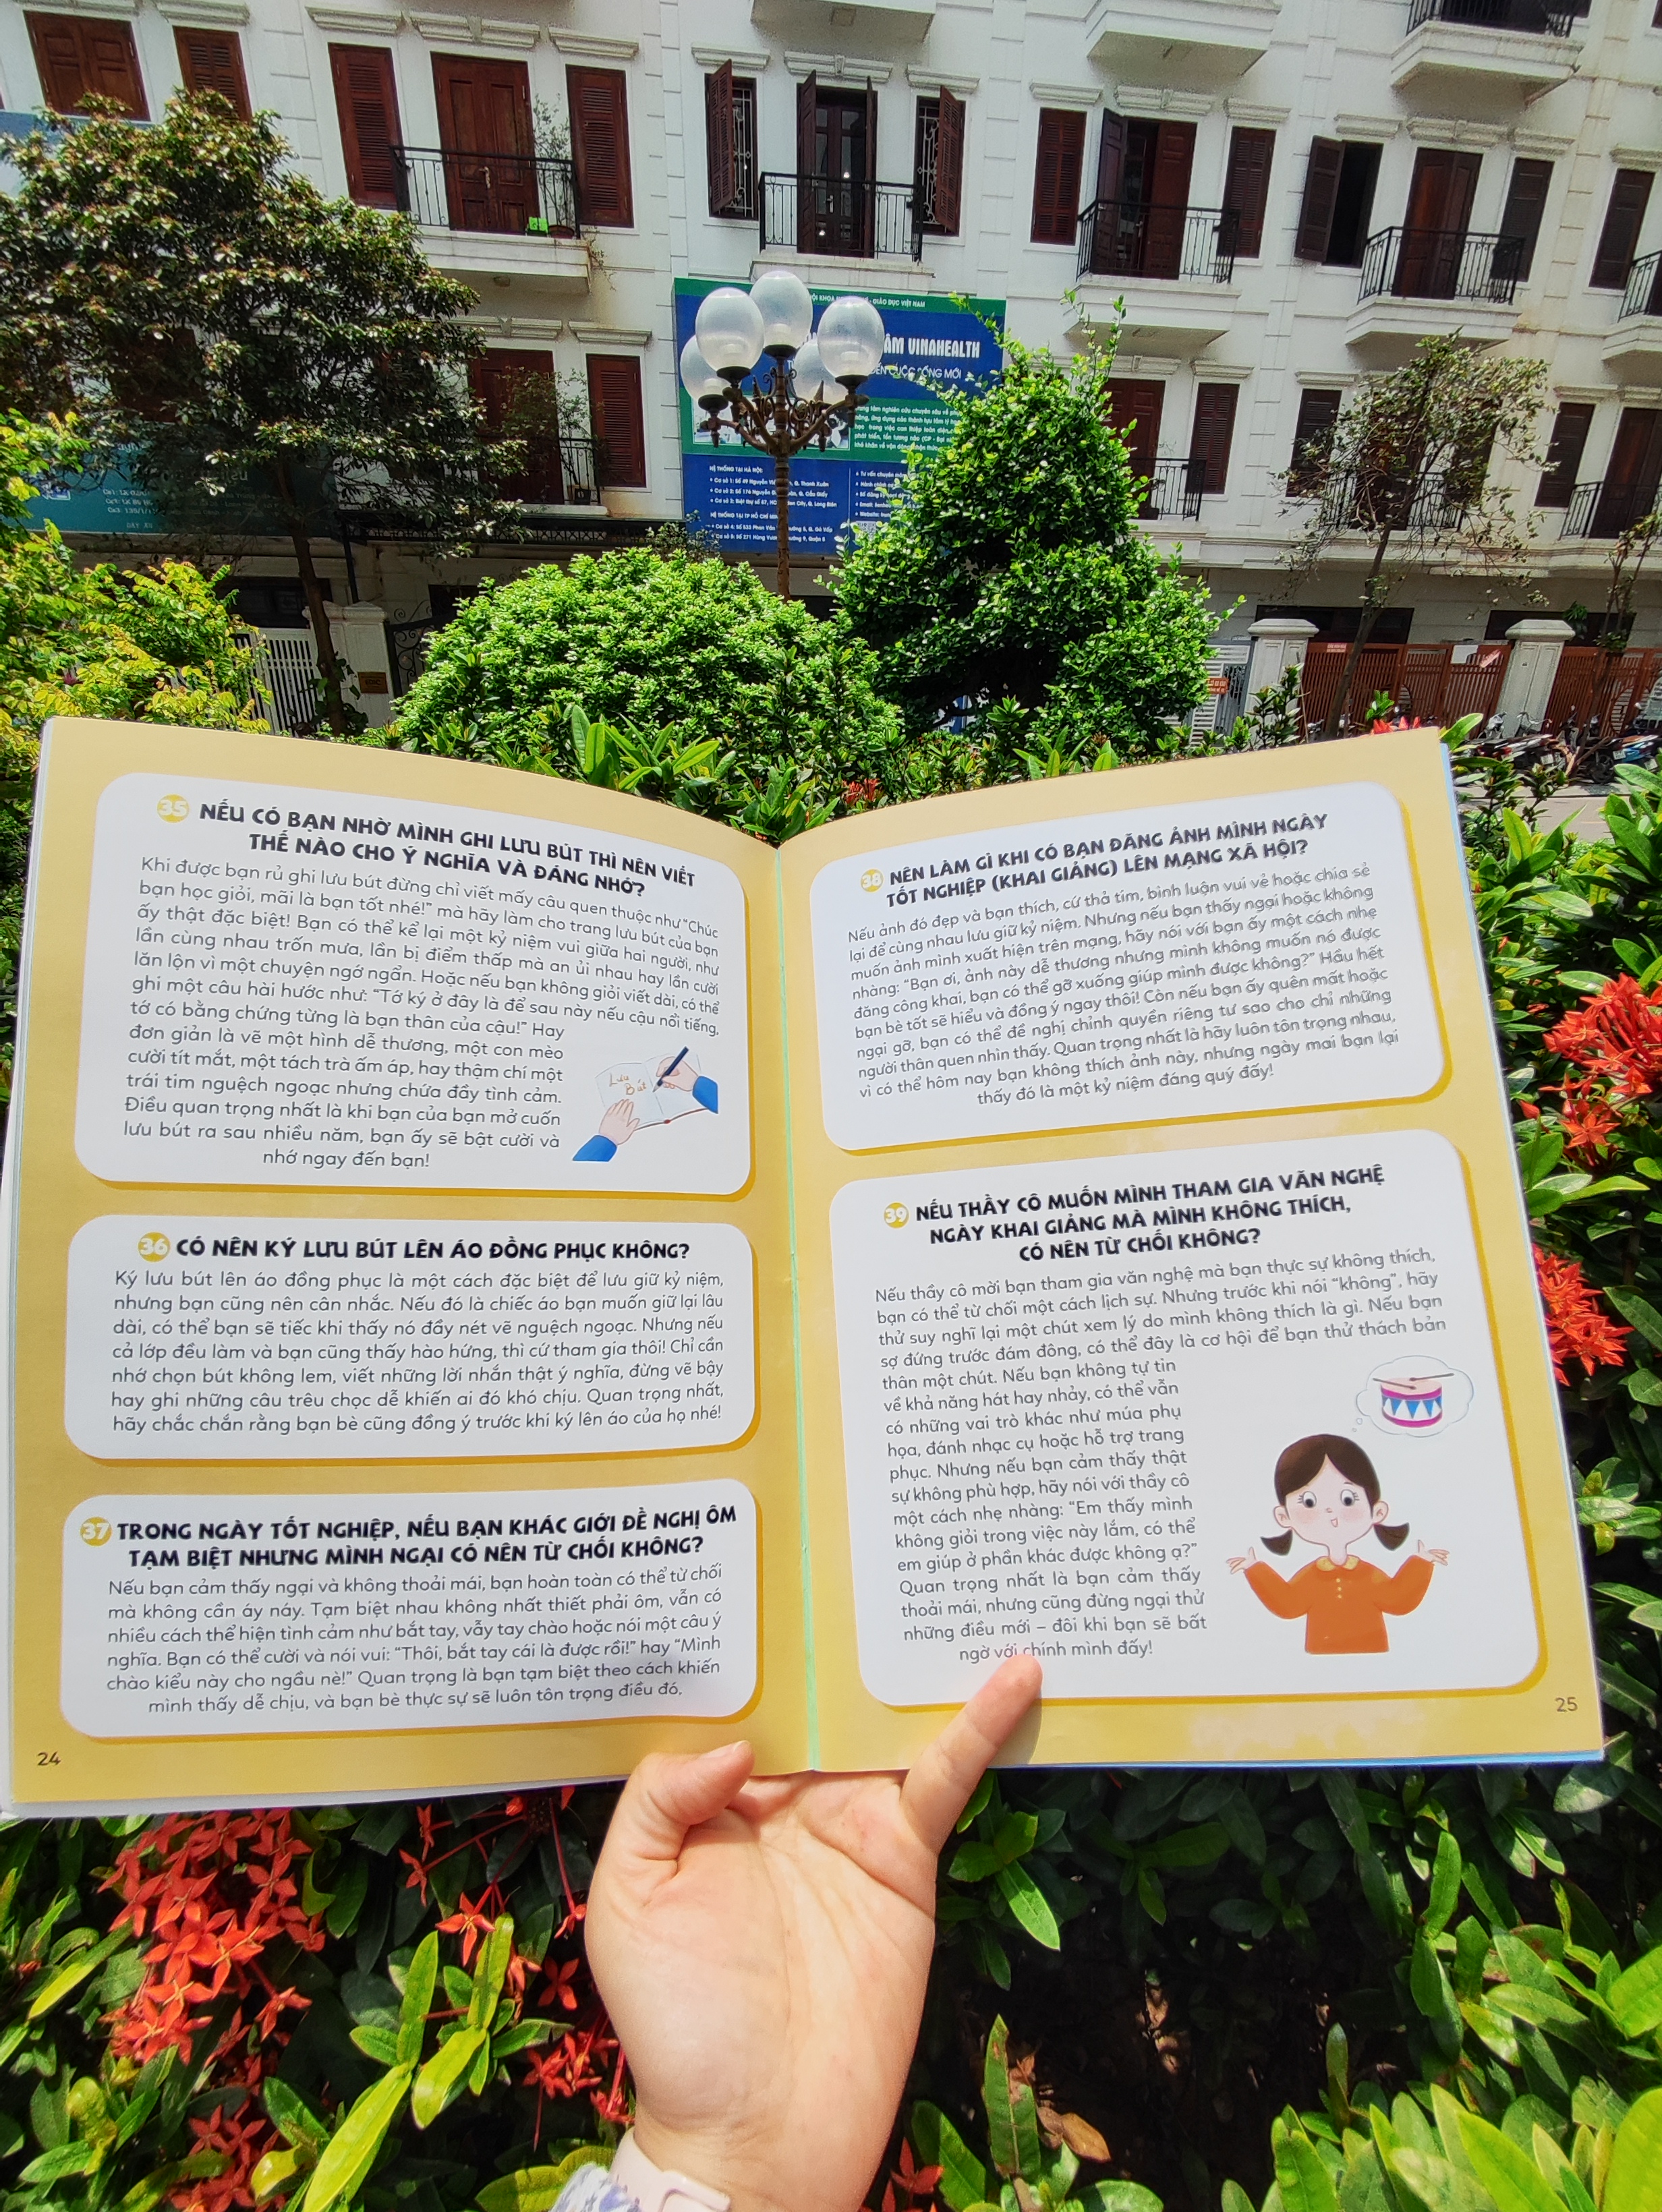 GIÁO DỤC VIỆT NAM
ÂM VINAHEALTH
HỆ THỐNG TẠI HÀ NỘI:
35 NẾU CÓ BẠN NHỜ MÌNH GHI LƯU BÚT THÌ NÊN VIẾT
THẾ NÀO CHO Ý NGHĨA VÀ ĐÁNG NHỚ?
Khi được bạn rủ ghi lưu bút đừng chỉ viết mấy câu quen thuộc như “Chúc
bạn học giỏi, mãi là bạn tốt nhé!” mà hãy làm cho trang lưu bút của bạn
ấy thật đặc biệt! Bạn có thể kể lại một kỷ niệm vui giữa hai người, như
lần cùng nhau trốn mưa, lần bị điểm thấp mà an ủi nhau hay lần cười
lăn lộn vì một chuyện ngớ ngẩn. Hoặc nếu bạn không giỏi viết dài, có thể
ghi một câu hài hước như: “Tớ ký ở đây là để sau này nếu cậu nổi tiếng,
tớ có bằng chứng từng là bạn thân của cậu!” Hay
đơn giản là vẽ một hình dễ thương, một con mèo
cười tít mắt, một tách trà ấm áp, hay thậm chí một
trái tim nguệch ngoạc nhưng chứa đầy tình cảm.
Điều quan trọng nhất là khi bạn của bạn mở cuốn
lưu bút ra sau nhiều năm, bạn ấy sẽ bật cười và
nhớ ngay đến bạn!
Lưu
Bút
36 CÓ NÊN KÝ LƯU BÚT LÊN ÁO ĐỒNG PHỤC KHÔNG?
Ký lưu bút lên áo đồng phục là một cách đặc biệt để lưu giữ kỷ niệm,
nhưng bạn cũng nên cân nhắc. Nếu đó là chiếc áo bạn muốn giữ lại lâu
dài, có thể bạn sẽ tiếc khi thấy nó đầy nét vẽ nguệch ngoạc. Nhưng nếu
cả lớp đều làm và bạn cũng thấy hào hứng, thì cứ tham gia thôi! Chỉ cần
nhớ chọn bút không lem, viết những lời nhắn thật ý nghĩa, đừng vẽ bậy
hay ghi những câu trêu chọc dễ khiến ai đó khó chịu. Quan trọng nhất,
hãy chắc chắn rằng bạn bè cũng đồng ý trước khi ký lên áo của họ nhé!
37 TRONG NGÀY TỐT NGHIỆP, NẾU BẠN KHÁC GIỚI ĐỀ NGHỊ ÔM
TẠM BIỆT NHƯNG MÌNH NGẠI CÓ NÊN TỪ CHỐI KHÔNG?
Nếu bạn cảm thấy ngại và không thoải mái, bạn hoàn toàn có thể từ chối
mà không cần áy náy. Tạm biệt nhau không nhất thiết phải ôm, vẫn có
nhiều cách thể hiện tình cảm như bắt tay, vẫy tay chào hoặc nói một câu ý
nghĩa. Bạn có thể cười và nói vui: “Thôi, bắt tay cái là được rồi!” hay “Mình
chào kiểu này cho ngầu nè!” Quan trọng là bạn tạm biệt theo cách khiến
mình thấy dễ chịu, và bạn bè thực sự sẽ luôn tôn trọng điều đó.
24
38 NÊN LÀM GÌ KHI CÓ BẠN ĐĂNG ẢNH MÌNH NGÀY
TỐT NGHIỆP (KHAI GIẢNG) LÊN MẠNG XÃ HỘI?
Nếu ảnh đó đẹp và bạn thích, cứ thả tim, bình luận vui vẻ hoặc chia sẻ
lại để cùng nhau lưu giữ kỷ niệm. Nhưng nếu bạn thấy ngại hoặc không
muốn ảnh mình xuất hiện trên mạng, hãy nói với bạn ấy một cách nhẹ
nhàng: “Bạn ơi, ảnh này dễ thương nhưng mình không muốn nó được
đăng công khai, bạn có thể gỡ xuống giúp mình được không?” Hầu hết
bạn bè tốt sẽ hiểu và đồng ý ngay thôi! Còn nếu bạn ấy quên mất hoặc
ngại gỡ, bạn có thể đề nghị chỉnh quyền riêng tư sao cho chỉ những
người thân quen nhìn thấy. Quan trọng nhất là hãy luôn tôn trọng nhau,
vì có thể hôm nay bạn không thích ảnh này, nhưng ngày mai bạn lại
thấy đó là một kỷ niệm đáng quý đấy!
39 NẾU THẦY CÔ MUỐN MÌNH THAM GIA VĂN NGHỆ
NGÀY KHAI GIẢNG MÀ MÌNH KHÔNG THÍCH,
CÓ NÊN TỪ CHỐI KHÔNG?
Nếu thầy cô mời bạn tham gia văn nghệ mà bạn thực sự không thích,
bạn có thể từ chối một cách lịch sự. Nhưng trước khi nói “không”, hãy
thử suy nghĩ lại một chút xem lý do mình không thích là gì. Nếu bạn
sợ đứng trước đám đông, có thể đây là cơ hội để bạn thử thách bản
thân một chút. Nếu bạn không tự tin
về khả năng hát hay nhảy, có thể vẫn
có những vai trò khác như múa phụ
họa, đánh nhạc cụ hoặc hỗ trợ trang
phục. Nhưng nếu bạn cảm thấy thật
sự không phù hợp, hãy nói với thầy cô
một cách nhẹ nhàng: “Em thấy mình
không giỏi trong việc này lắm, có thể
em giúp ở phần khác được không ạ?”
Quan trọng nhất là bạn cảm thấy
thoải mái, nhưng cũng đừng ngại thử
những điều mới – đôi khi bạn sẽ bất
ngờ với chính mình đấy!
25